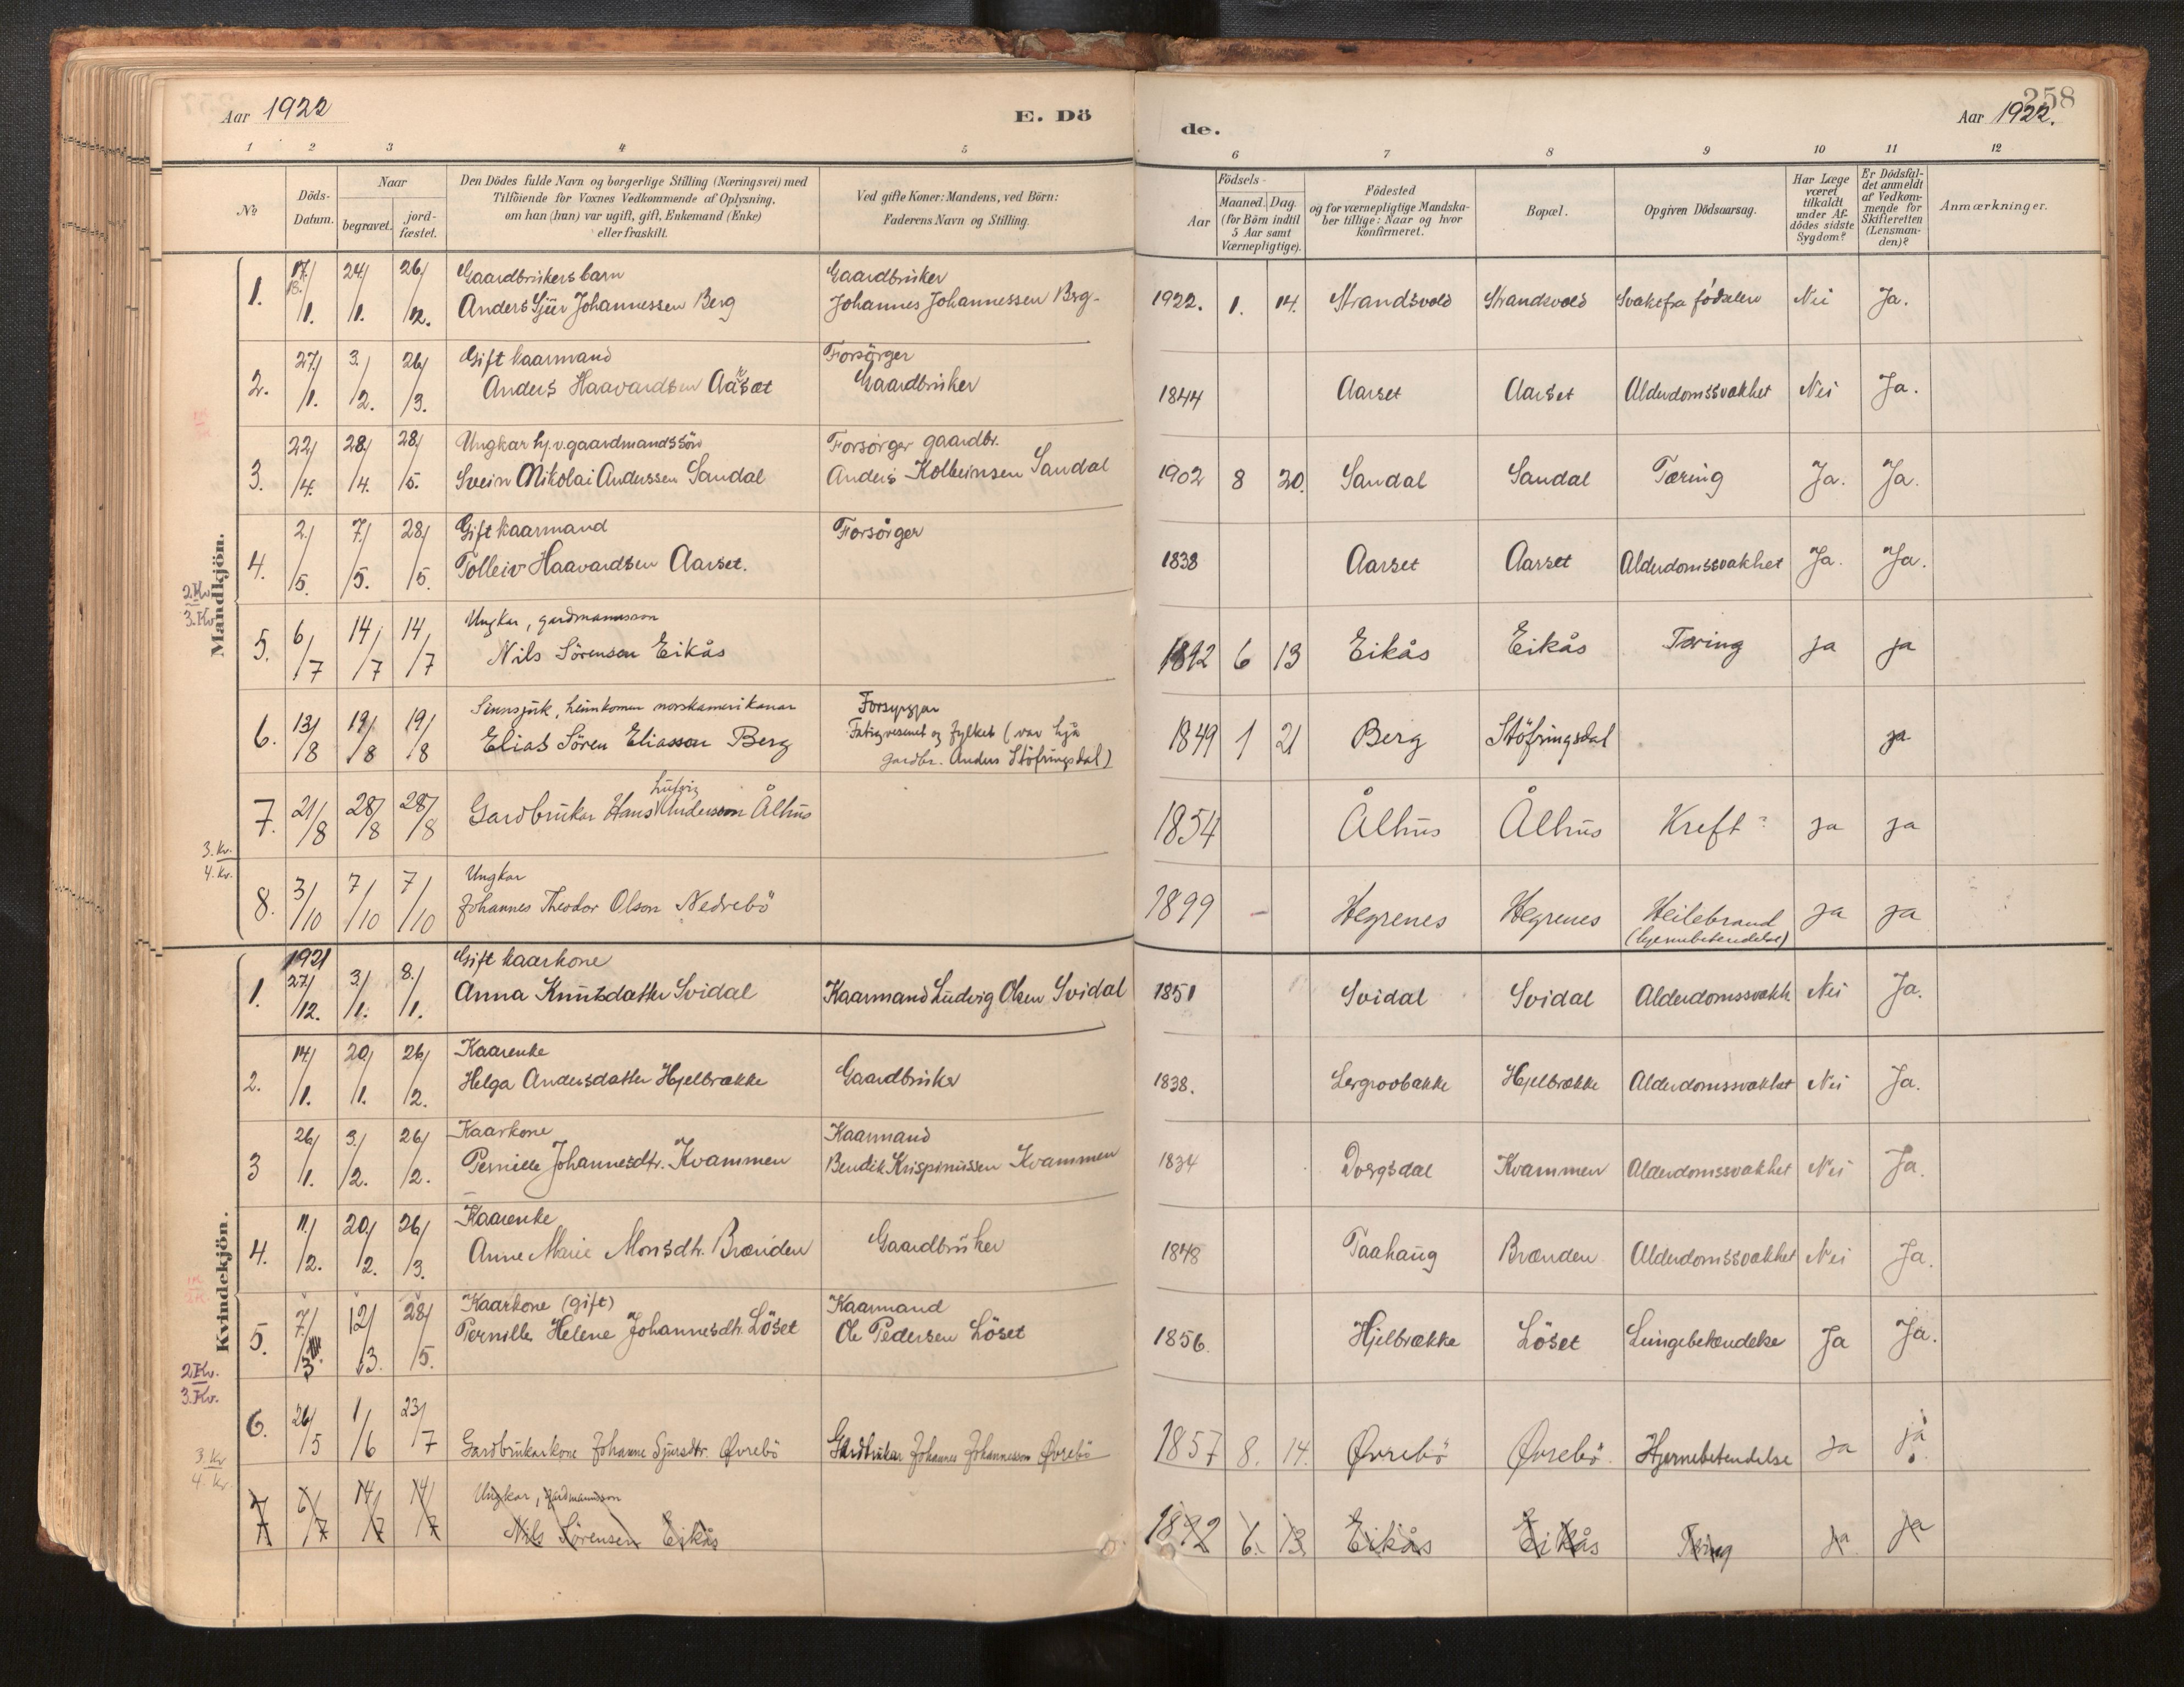 258
Aar 1922
E. Dö
de.
Aar 1922.
1 2 3 4 5 6 7 8 9 10 11 12
No
Döds-
Datum.
Naar
begravet.
jord-
fæstet.
Den Dödes fulde Navn og borgerlige Stilling (Næringsvei) med
Tilföiende for Voxnes Vedkommende af Oplysning,
om han (hun) var ugift, gift, Enkemand (Enke)
eller fraskilt.
Ved gifte Koner: Mandens, ved Börn:
Faderens Navn og Stilling.
Födsels-
Aar
Maaned. Dag.
(for Börn indtil
5 Aar samt
Værnepligtige).
Födested
og for værnepligtige Mandska-
ber tillige: Naar og hvor
konfirmeret.
Bopæl.
Opgiven Dödsaarsag.
Har Læge
været
tilkaldt
under Af-
dödes sidste
Sygdom?
Er Dödsfal-
det anmeldt
af Vedkom-
mende for
Skifteretten
(Lensman-
den)?
Anmærkninger.
Mandkjön.
17/ 24/ 26/ Gaardbrukers barn Gaardbruker
1. /1. /1. /2. Anders Sjur Johannessen Berg Johannes Johannessen Berg 1922. 1. 14. Strandsvold Strandsvold Svak fra fødselen Nei Ja.
27/ 3./ 26/ Gift kaarmand Forsörger
2. /1. /2. /3. Anders Haavardsen Aarset Gaardbruker 1844 Aarset Aarset Alderdomssvakhet Nei Ja.
22/ 28/ 28/ Ungkar hj. v. gaardmandssön Forsörger gaardbr.
3. /4. /4. /5. Svein Nikolai Anderssen Sandal Anders Kolbeinsen Sandal 1902 8 20. Sandal Sandal Tæring Ja. Ja.
2./ 7./ 28/ Gift kaarmand Forsörger
4. /5. /5. /5. Tolleiv Haavardsen Aarset. 1838 Aarset Aarset Alderdomssvakhet Ja. Ja.
2. Kv.
3. Kv.
Ungkar, gardmannsson
5. 6/7 14/7 14/7 Nils Sörenson Eikås 1892 6 13 Eikås Eikås Tæring ja ja
Sinnsjuk, heimkomen norskamerikanar Forsyrgjar
6. 13/8 19/8 19/8 Elias Sören Eliasson Berg Fatigvesenet og fylket (var hjå
gardbr. Anders Stöfringsdal) 1849 1 21 Berg Stöfringsdal ja
Ludvig
7. 21/8 28/8 28/8 Gardbrukar Hans Andersson Ålhus 1854 Ålhus Ålhus Kreft? ja ja
3. Kv.
4. Kv.
Ungkar
8. 3/10 7/10 7/10 Johannes Theodor Olson Nedrebö 1899 - Hegrenes Hegrenes Heilebrand ja ja
(hjernebetendelse)
Kvindekjön.
1921 Gift kaarkone
1. 27/12. 3/1. 8./1. Anna Knutsdatter Svidal Kaarmand Ludvig Olsen Svidal 1851 Svidal Svidal Alderdomssvakh Nei Ja.
Kaarenke
2. 14/1. 20/1. 26/2. Helga Andersdatter Hjelbrække Gaardbruker 1838. Lergrovbakke Hjelbrække Alderdomssvakhet Nei Ja.
Kaarkone Kaarmand
3 26/1. 3./2. 26/2. Pernille Johannesdtr. Kvammen Bendik Krispinussen Kvammen 1834 Dvergsdal Kvammen Alderdomssvakhet Nei Ja.
Kaarenke
4. 11/2. 20/2. 26/3. Anne Marie Monsdtr. Brænden Gaardbruker 1848 Taahaug Brænden Alderdomssvakhet Nei Ja.
Kaarkone (gift) Kaarmand
5. 7./3 12/3. 28/5. Pernille Helene Johannesdtr. Löset Ole Pedersen Löset 1856. Hjelbrække Löset Lungebetændelse Ja Ja.
2. Kv.
3. Kv.
6. 26/5 1/6 23/7 Gardbrukarkone Johanne Sjursdtr. Øvrebö Gardbrukar Johannes Johannesson Øvrebö 1857 8. 14. Øvrebö Øvrebö Hjernebetendelse ja ja
3. Kv
4. Kv.
Ungkar, gardmannsson
7 6/7 14/7 14/7 Nils Sörensen Eikås 1892 6. 13 Eikås Eikås Tæring ja ja